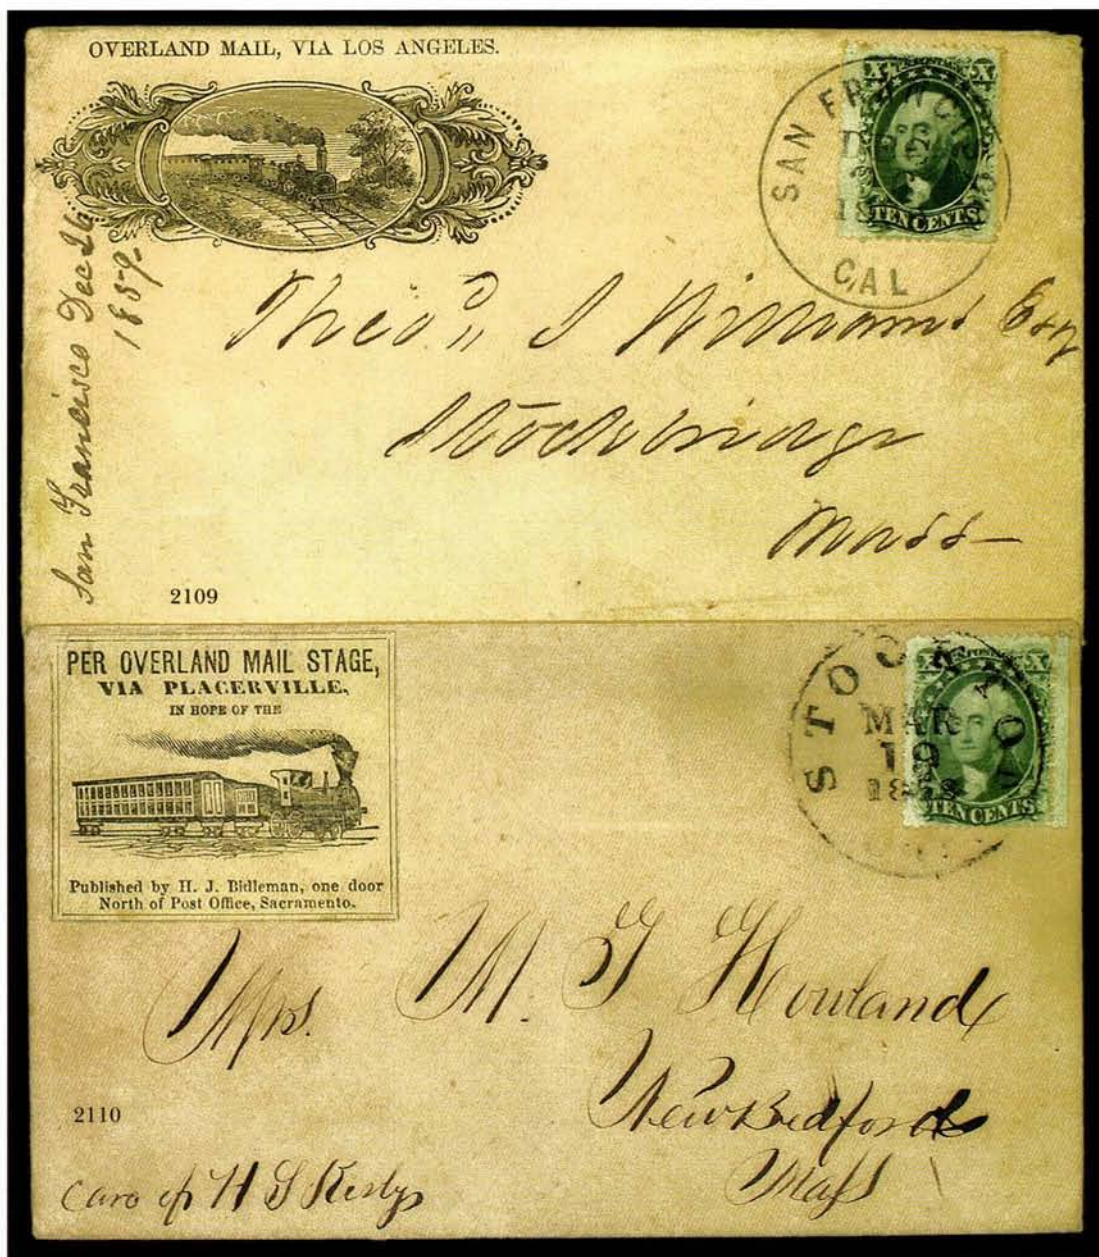 OVERLAND MAIL, VIA LOS ANGELES.
X X
SAN FRANCISCO
D
18
TEN CENTS
CAL
San Francisco Dec 26
1859
Theo. S Williams Esq
Stockbridge
Mass
2109
PER OVERLAND MAIL STAGE,
VIA PLACERVILLE,
IN HOPE OF THE
Published by H. J. Bidleman, one door
North of Post Office, Sacramento.
X X
STOC
MAR
19
TEN CENTS
Mrs. M. G Howland
New Bedford
Mass
2110
care of H G